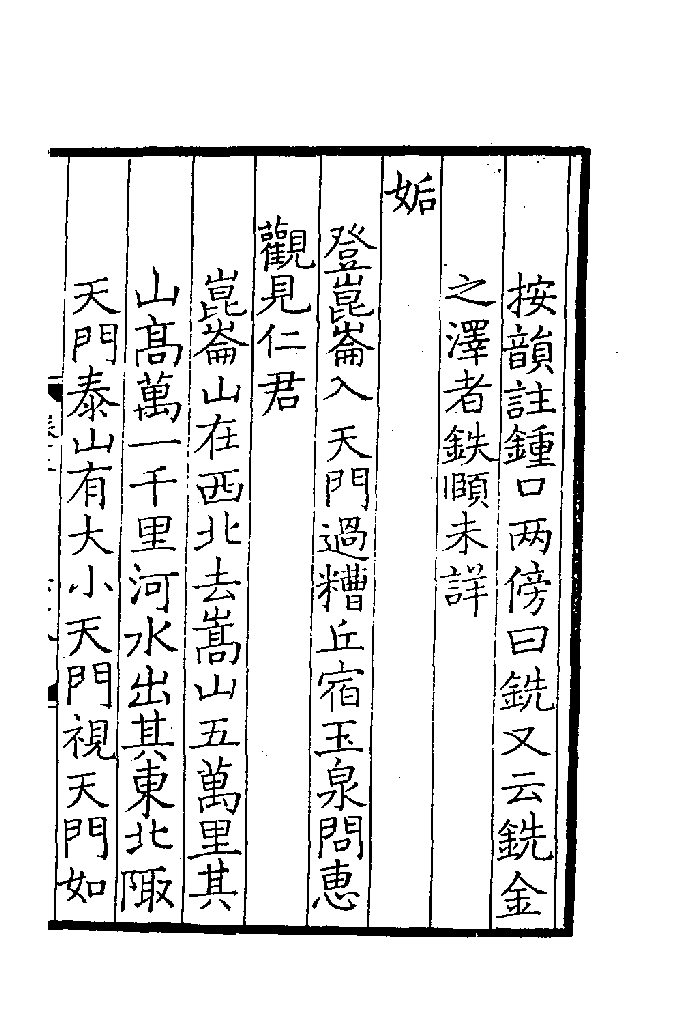 按韻註鍾口两傍曰銑又云銑金
之澤者鉄頤未詳
姤
登崑崙入天門過糟丘宿玉泉問惠
觀見仁君
崑崙山在西北去嵩山五萬里其
山髙萬一千里河水出其東北陬
天門泰山有大小天門視天門如